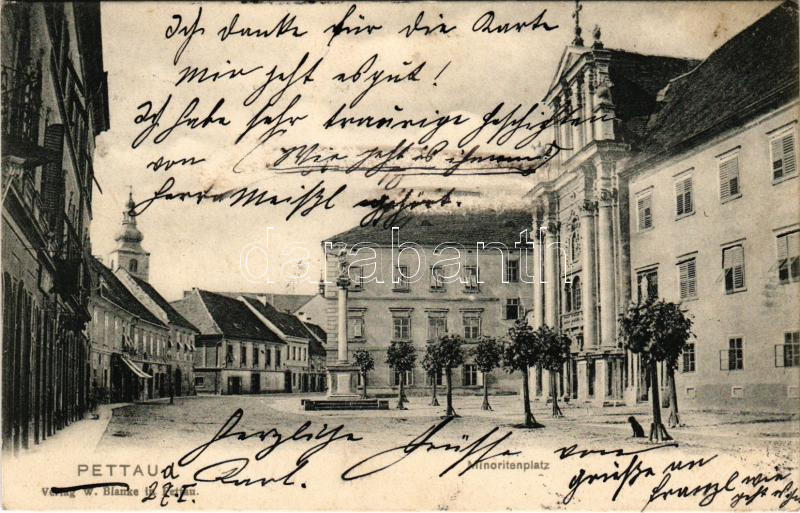 Ich danke für die Karte
Mir geht es gut!
Ich habe sehr traurige geschichten
von Wie geht es ihm
Herrn Meißl gehört.
darabanth
PETTAU
Minoritenplatz
Verlag W. Blanke in Pettau.
27/I.
Herzliche Grüsse von
Karl.
grüße an
Franzl wie
geht es ihm